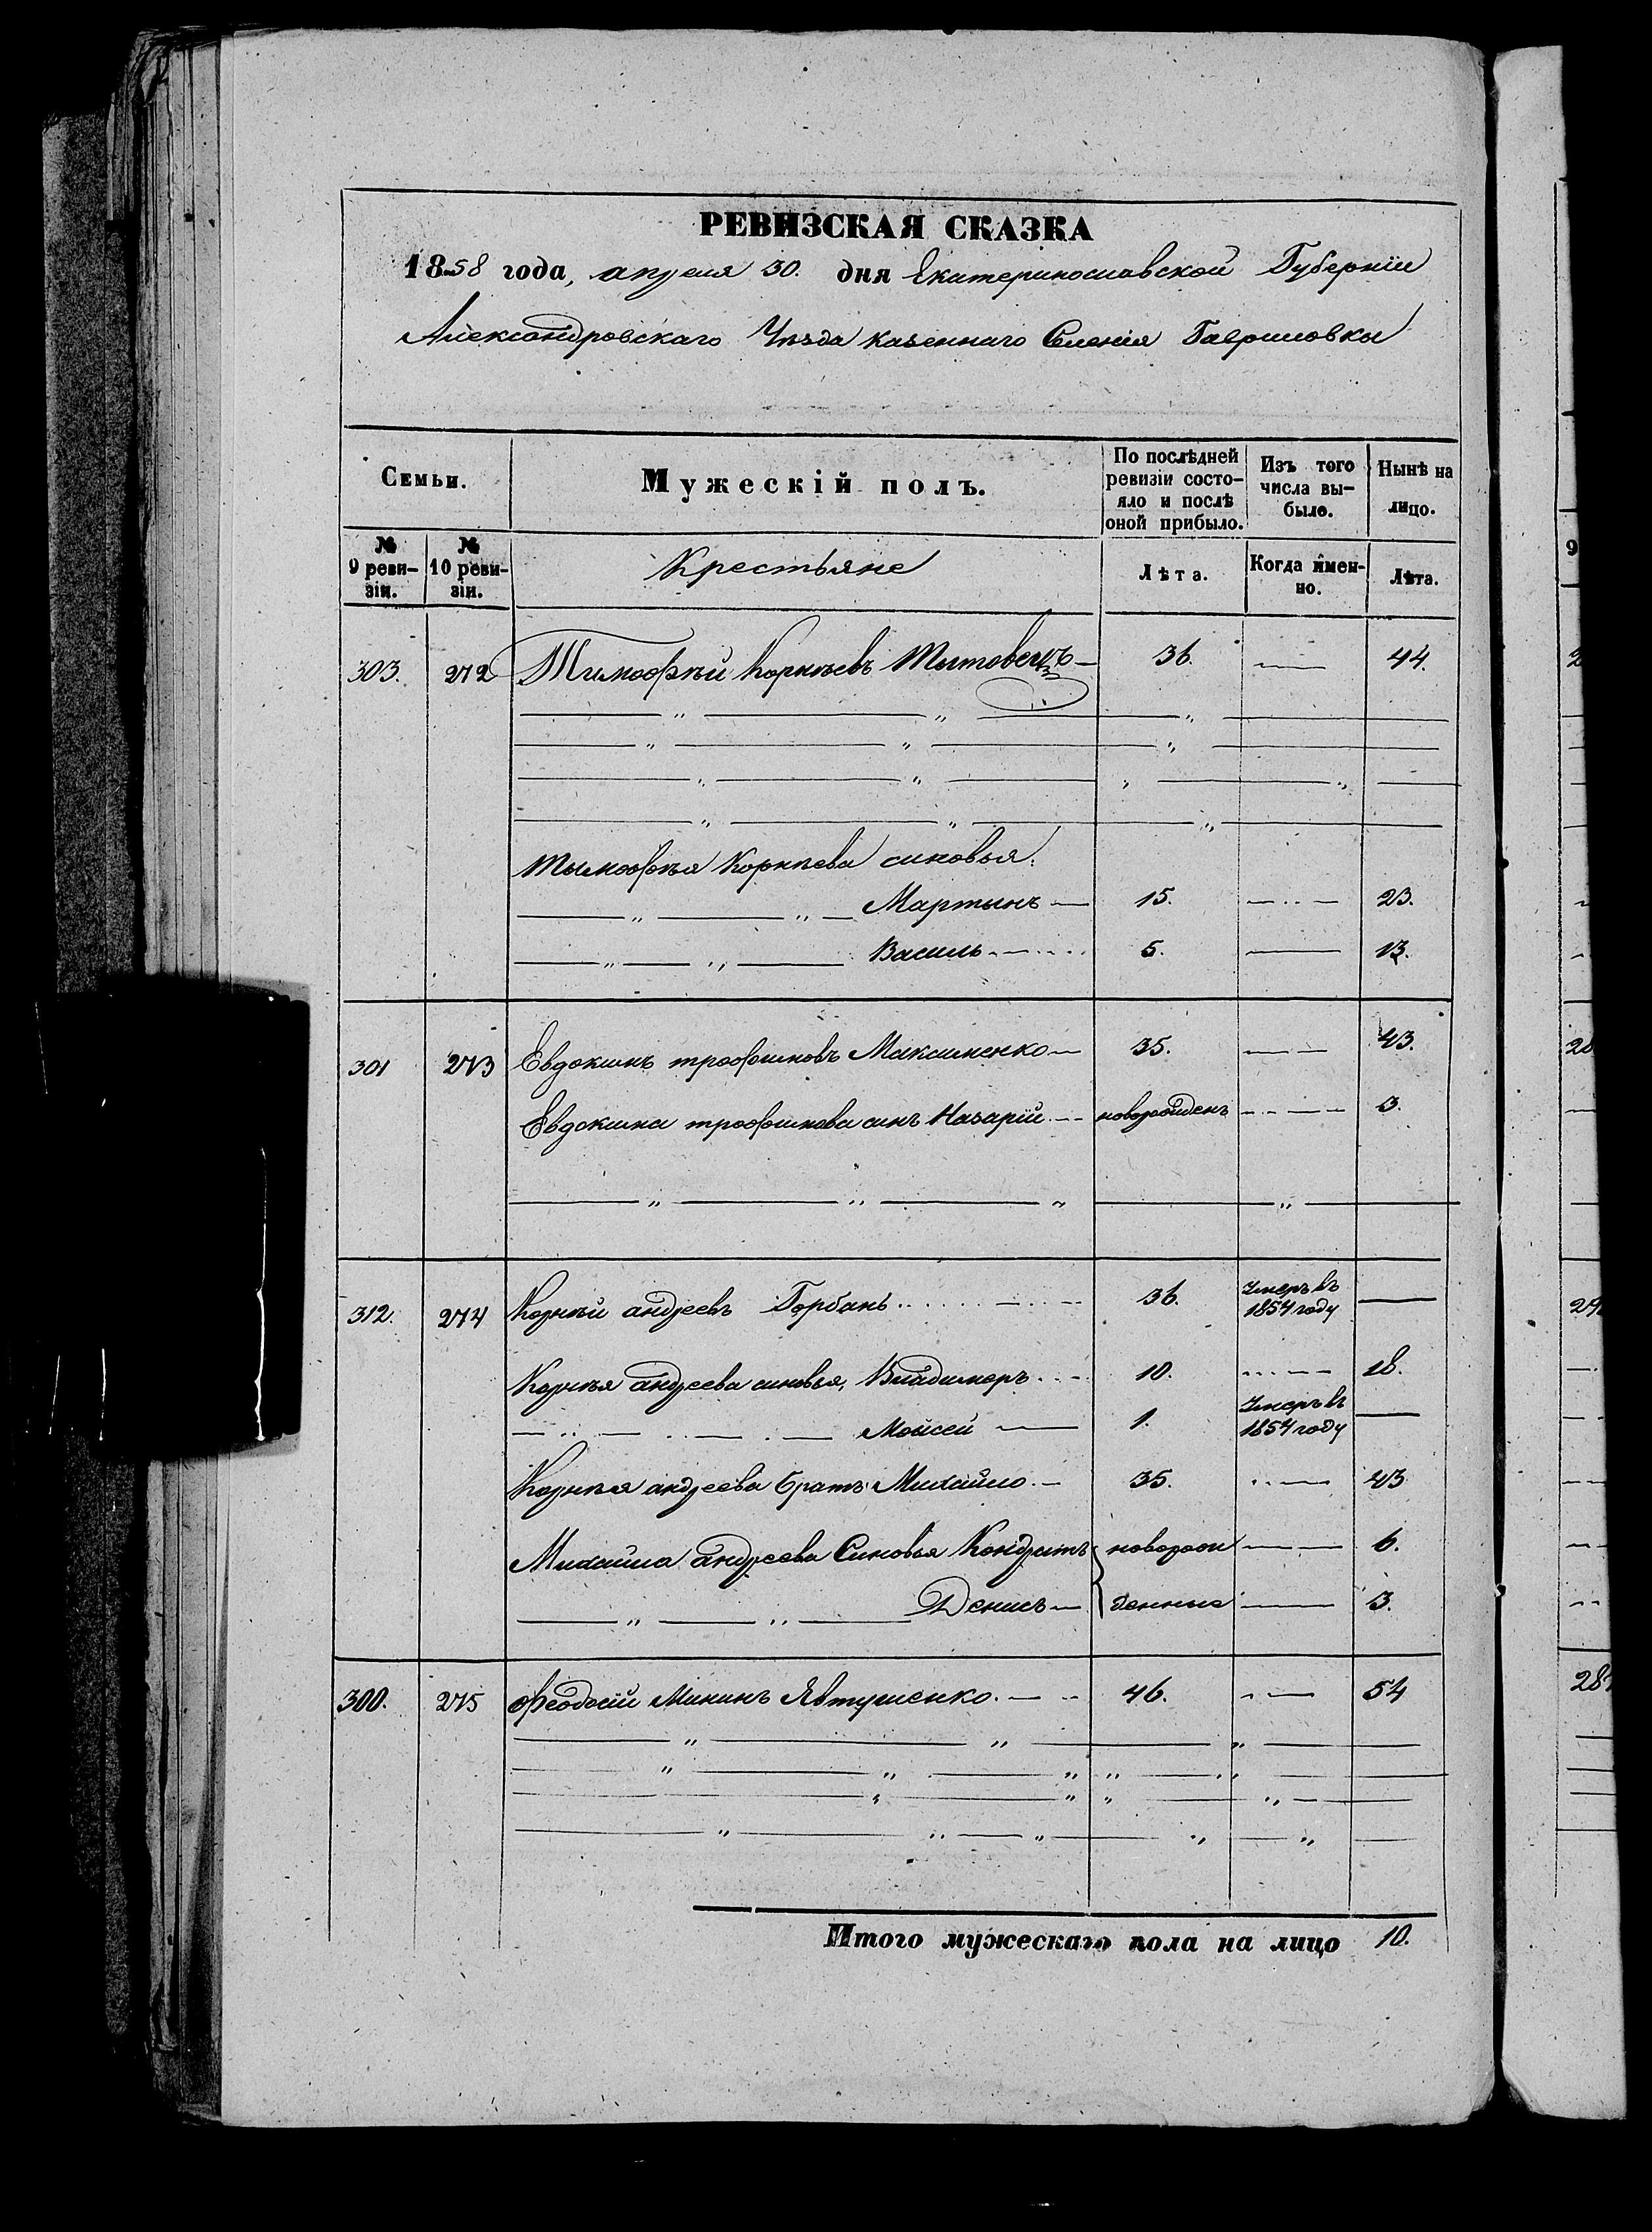 РЕВИЗСКАЯ СКАЗКА
1858 года, апреля 30. дня Екатеринославской Губерніи
Александровскаго Уѣзда казеннаго Селенія Гавриловки
Семьи. Мужескій полъ. По послѣдней ревизіи состо- яло и послѣ оной прибыло. Изъ того числа вы- было. Нынѣ на лицо.
№ 9 реви- зіи. № 10 реви- зіи. Крестьяне Лѣта. Когда имен- но. Лѣта.
303. 272 Тимофѣй Корнѣевъ 36. — 44.
Тымофѣя Корнѣева синовья:
Мартынъ — 15. — 23.
Василь 5. — 13.
301 273 Евдокимъ трофимовъ Максименко — 35. — 43.
Евдокима трофимова синъ Назарій — новорожденъ — 3.
312. 274 Корнѣй андреевъ Горбань 36. Умеръ въ 1854 году —
Корнѣя андреева синовья, Владимеръ 10. — 18.
Мойсей — 1. Умеръ въ 1854 году —
Корнѣя андреева братъ Михайло — 35. — 43
Михайла андреева Синовья Кондратъ новорож — 6.
Денисъ — денные — 3.
300. 275 Феодосій Мининъ Явтушенко. — 46. — 54
Итого мужескаго пола на лицо 10.